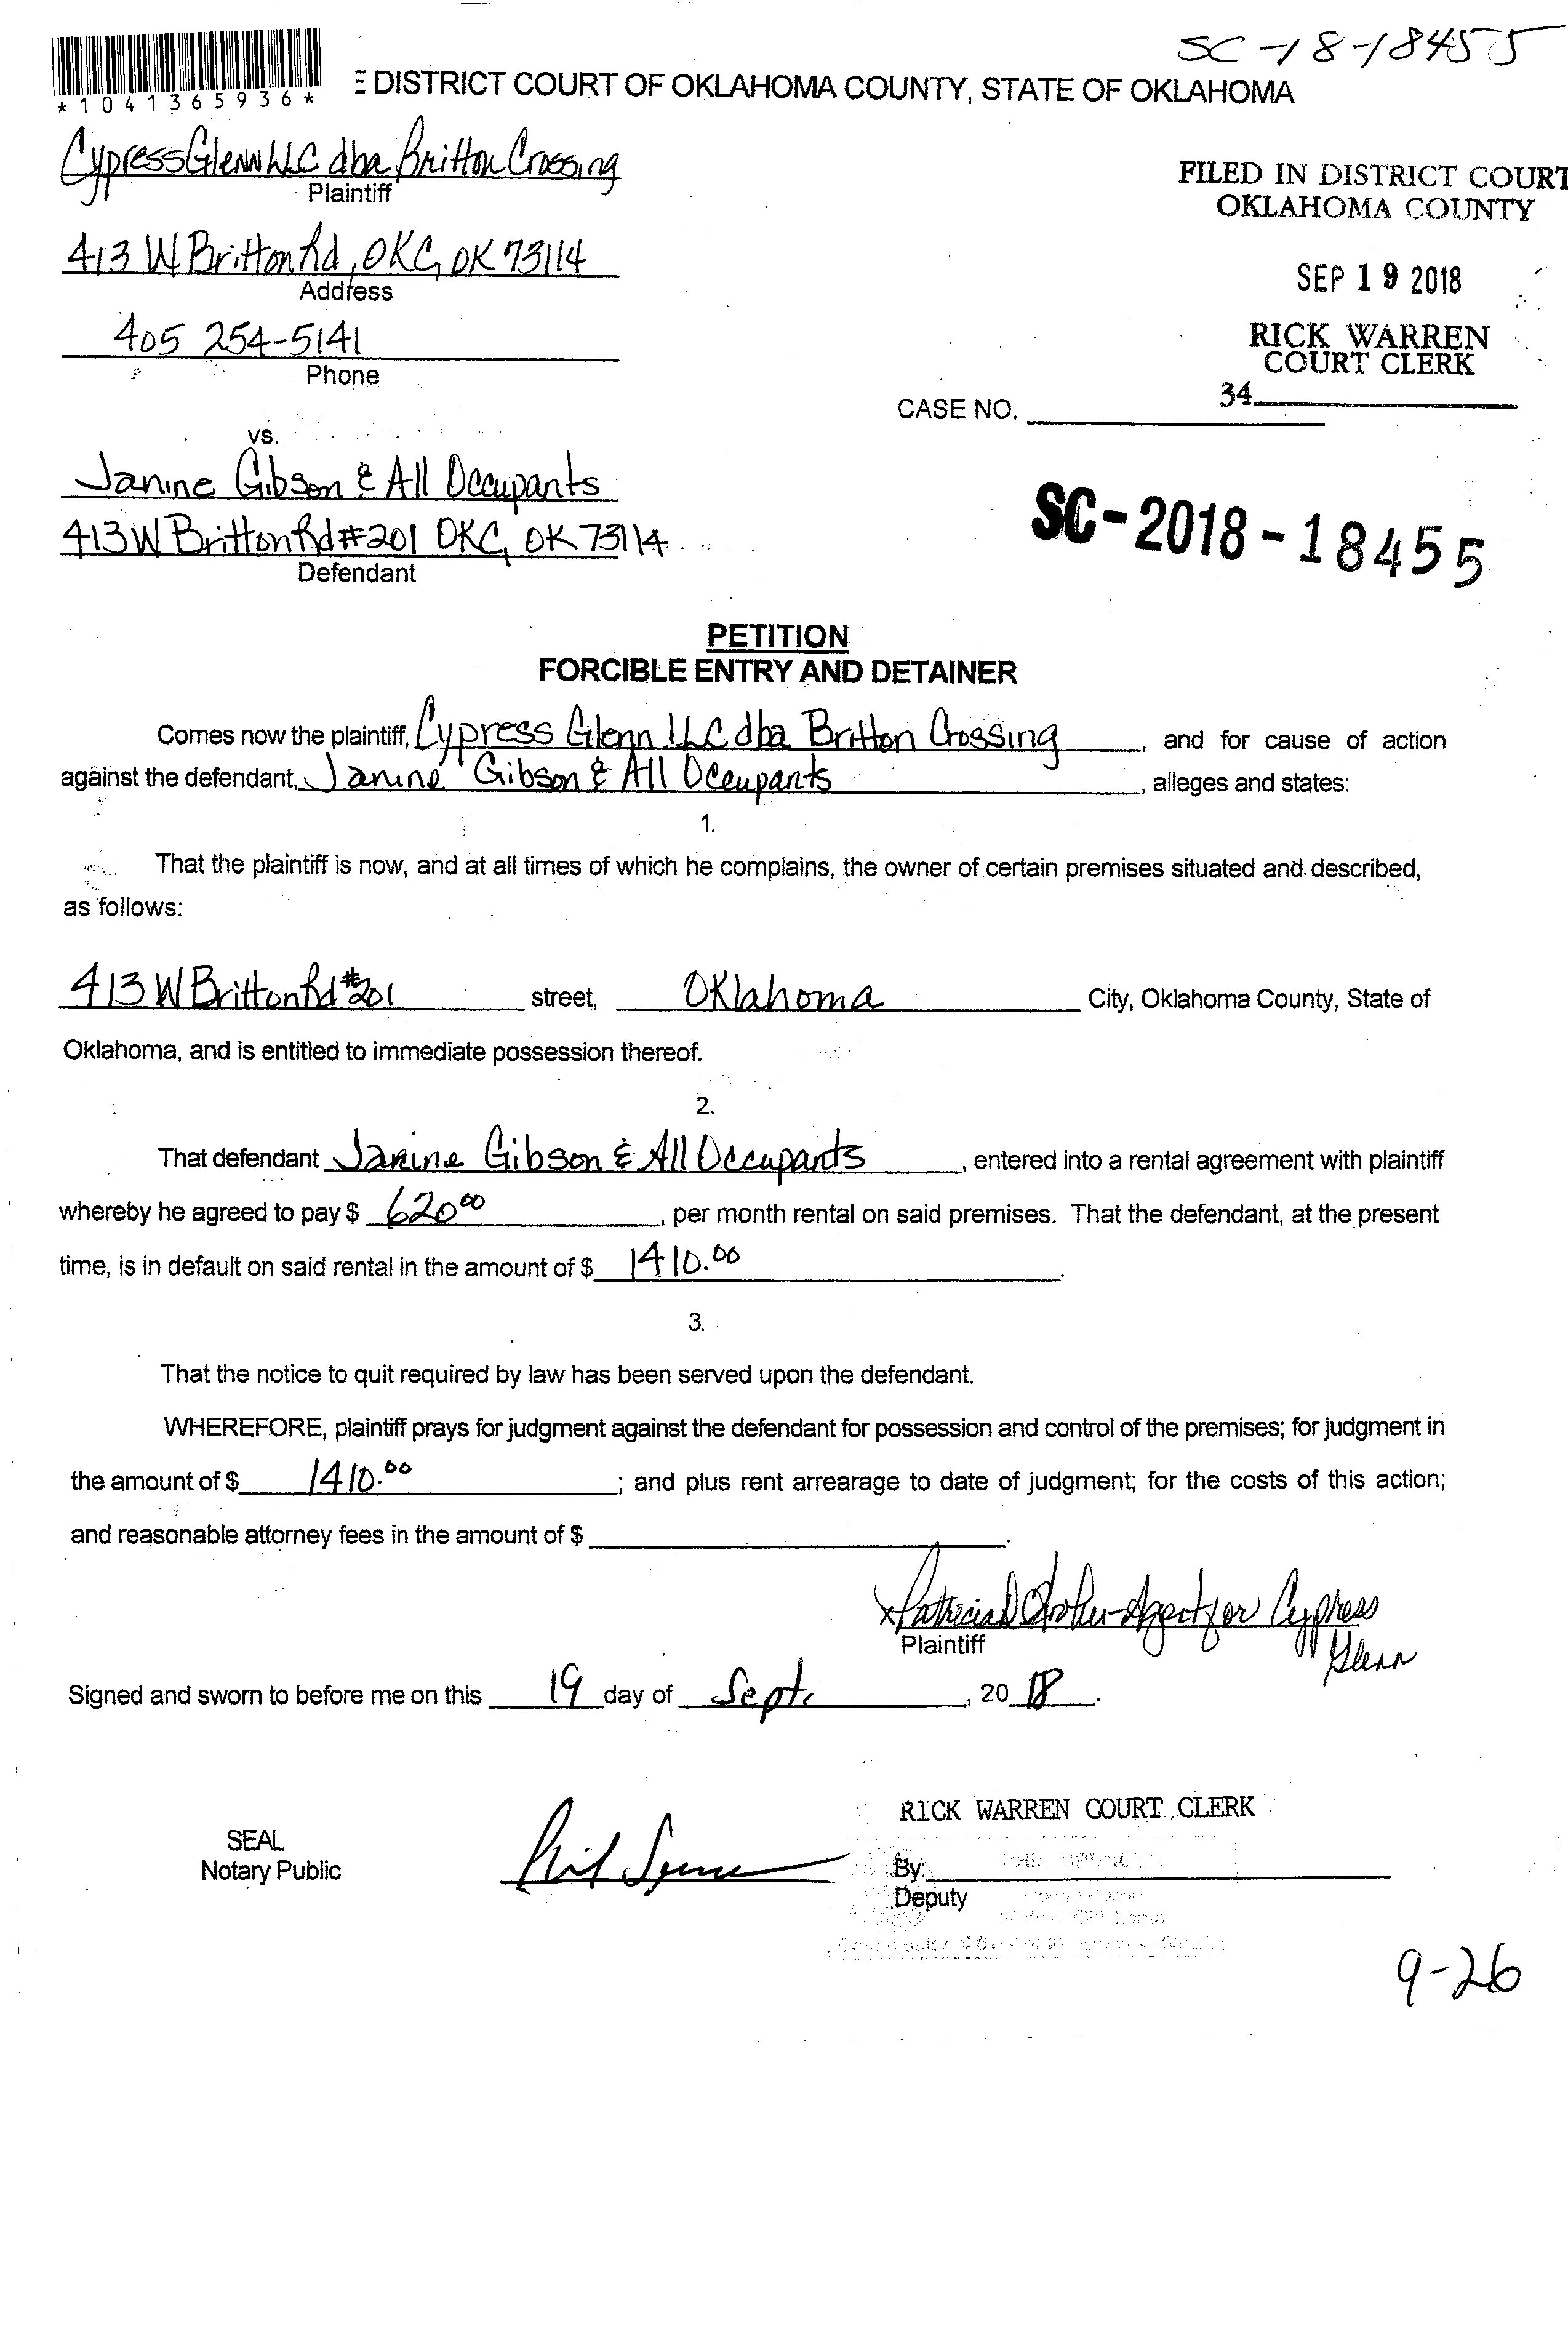 SC-18-18455
*1041365936*
E DISTRICT COURT OF OKLAHOMA COUNTY, STATE OF OKLAHOMA
Cypress Glenn LLC dba Britton Crossing
Plaintiff
FILED IN DISTRICT COURT
OKLAHOMA COUNTY
413 W Britton Rd, OKC, OK 73114
Address
SEP 19 2018
405 254-5141
Phone
RICK WARREN
COURT CLERK
34
CASE NO.
vs.
Janine Gibson & All Occupants
413 W Britton Rd #201 OKC, OK 73114
Defendant
SC-2018-18455
PETITION
FORCIBLE ENTRY AND DETAINER
Comes now the plaintiff, Cypress Glenn LLC dba Britton Crossing, and for cause of action
against the defendant, Janine Gibson & All Occupants, alleges and states:
1.
That the plaintiff is now, and at all times of which he complains, the owner of certain premises situated and described,
as follows:
413 W Britton Rd #201 street, Oklahoma City, Oklahoma County, State of
Oklahoma, and is entitled to immediate possession thereof.
2.
That defendant Janine Gibson & All Occupants, entered into a rental agreement with plaintiff
whereby he agreed to pay $ 620.00, per month rental on said premises. That the defendant, at the present
time, is in default on said rental in the amount of $ 1410.00.
3.
That the notice to quit required by law has been served upon the defendant.
WHEREFORE, plaintiff prays for judgment against the defendant for possession and control of the premises; for judgment in
the amount of $ 1410.00; and plus rent arrearage to date of judgment; for the costs of this action;
and reasonable attorney fees in the amount of $ .
x Patricia Agent for Cypress
Glenn
Plaintiff
Signed and sworn to before me on this 19 day of Sept., 20 18.
RICK WARREN COURT CLERK
SEAL
Notary Public
By:
Deputy
9-26